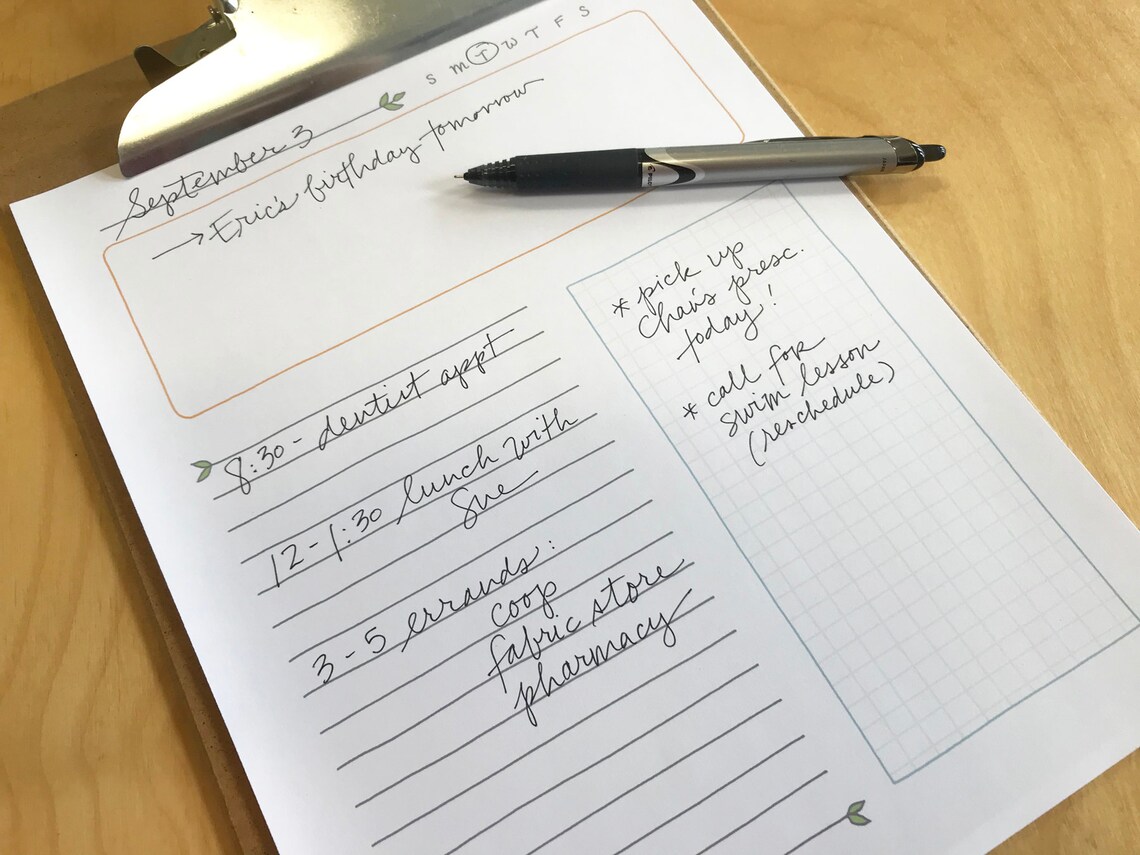 S M T W T F S
September 3
→ Eric's birthday tomorrow
8:30 - dentist appt
12-1:30 lunch with
Sue
3-5 errands:
coop
fabric store
pharmacy
* pick up
presc.
today!
* call for
swim lesson
(reschedule)